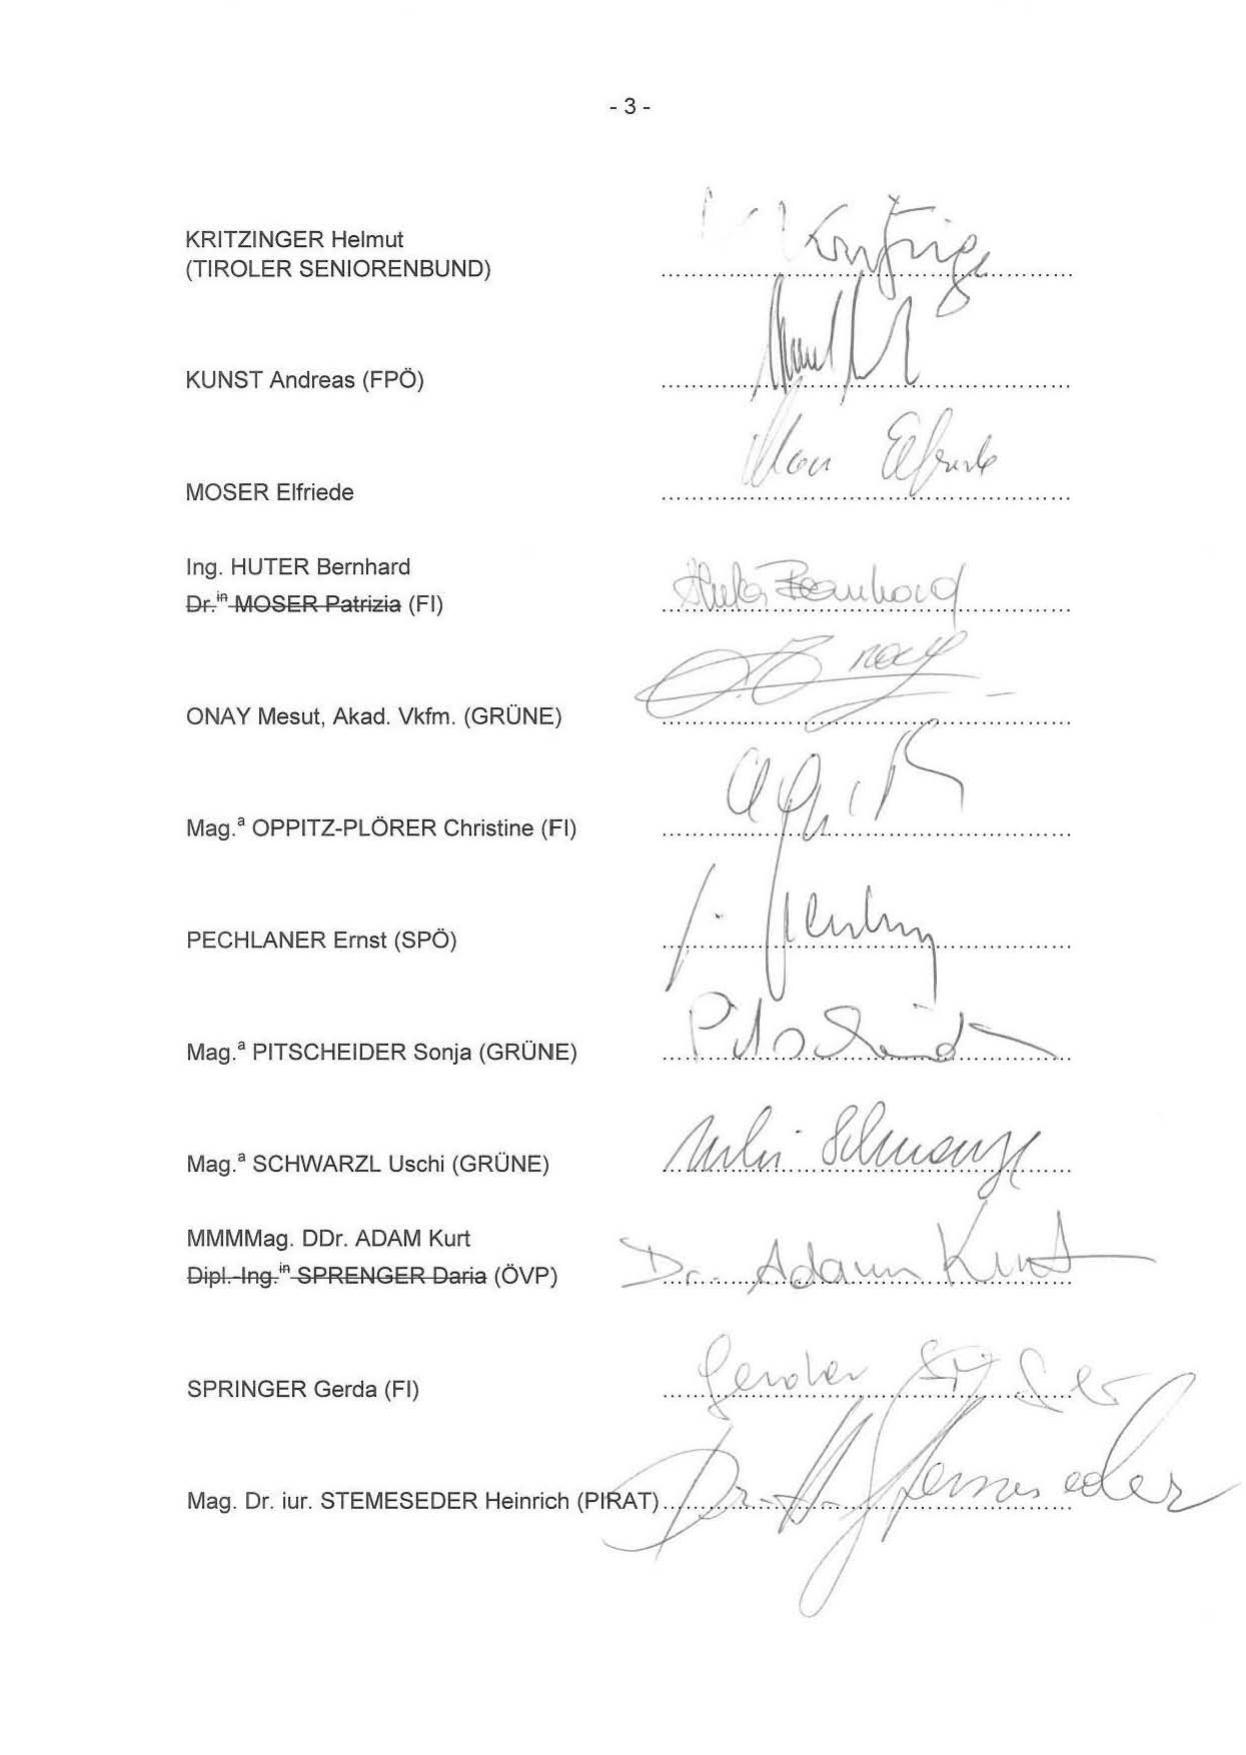 - 3 -
KRITZINGER Helmut
(TIROLER SENIORENBUND)
KUNST Andreas (FPÖ)
MOSER Elfriede
Elfriede
Ing. HUTER Bernhard
Dr.in MOSER Patrizia (FI)
Huter Bernhard
ONAY Mesut, Akad. Vkfm. (GRÜNE)
Mag.a OPPITZ-PLÖRER Christine (FI)
PECHLANER Ernst (SPÖ)
Mag.a PITSCHEIDER Sonja (GRÜNE)
Pitscheider
Mag.a SCHWARZL Uschi (GRÜNE)
MMMMag. DDr. ADAM Kurt
Dipl.-Ing.in SPRENGER Daria (ÖVP)
Dr. Adam Kurt
SPRINGER Gerda (FI)
Gerda Springer
Mag. Dr. iur. STEMESEDER Heinrich (PIRAT)
Dr. H. Stemeseder